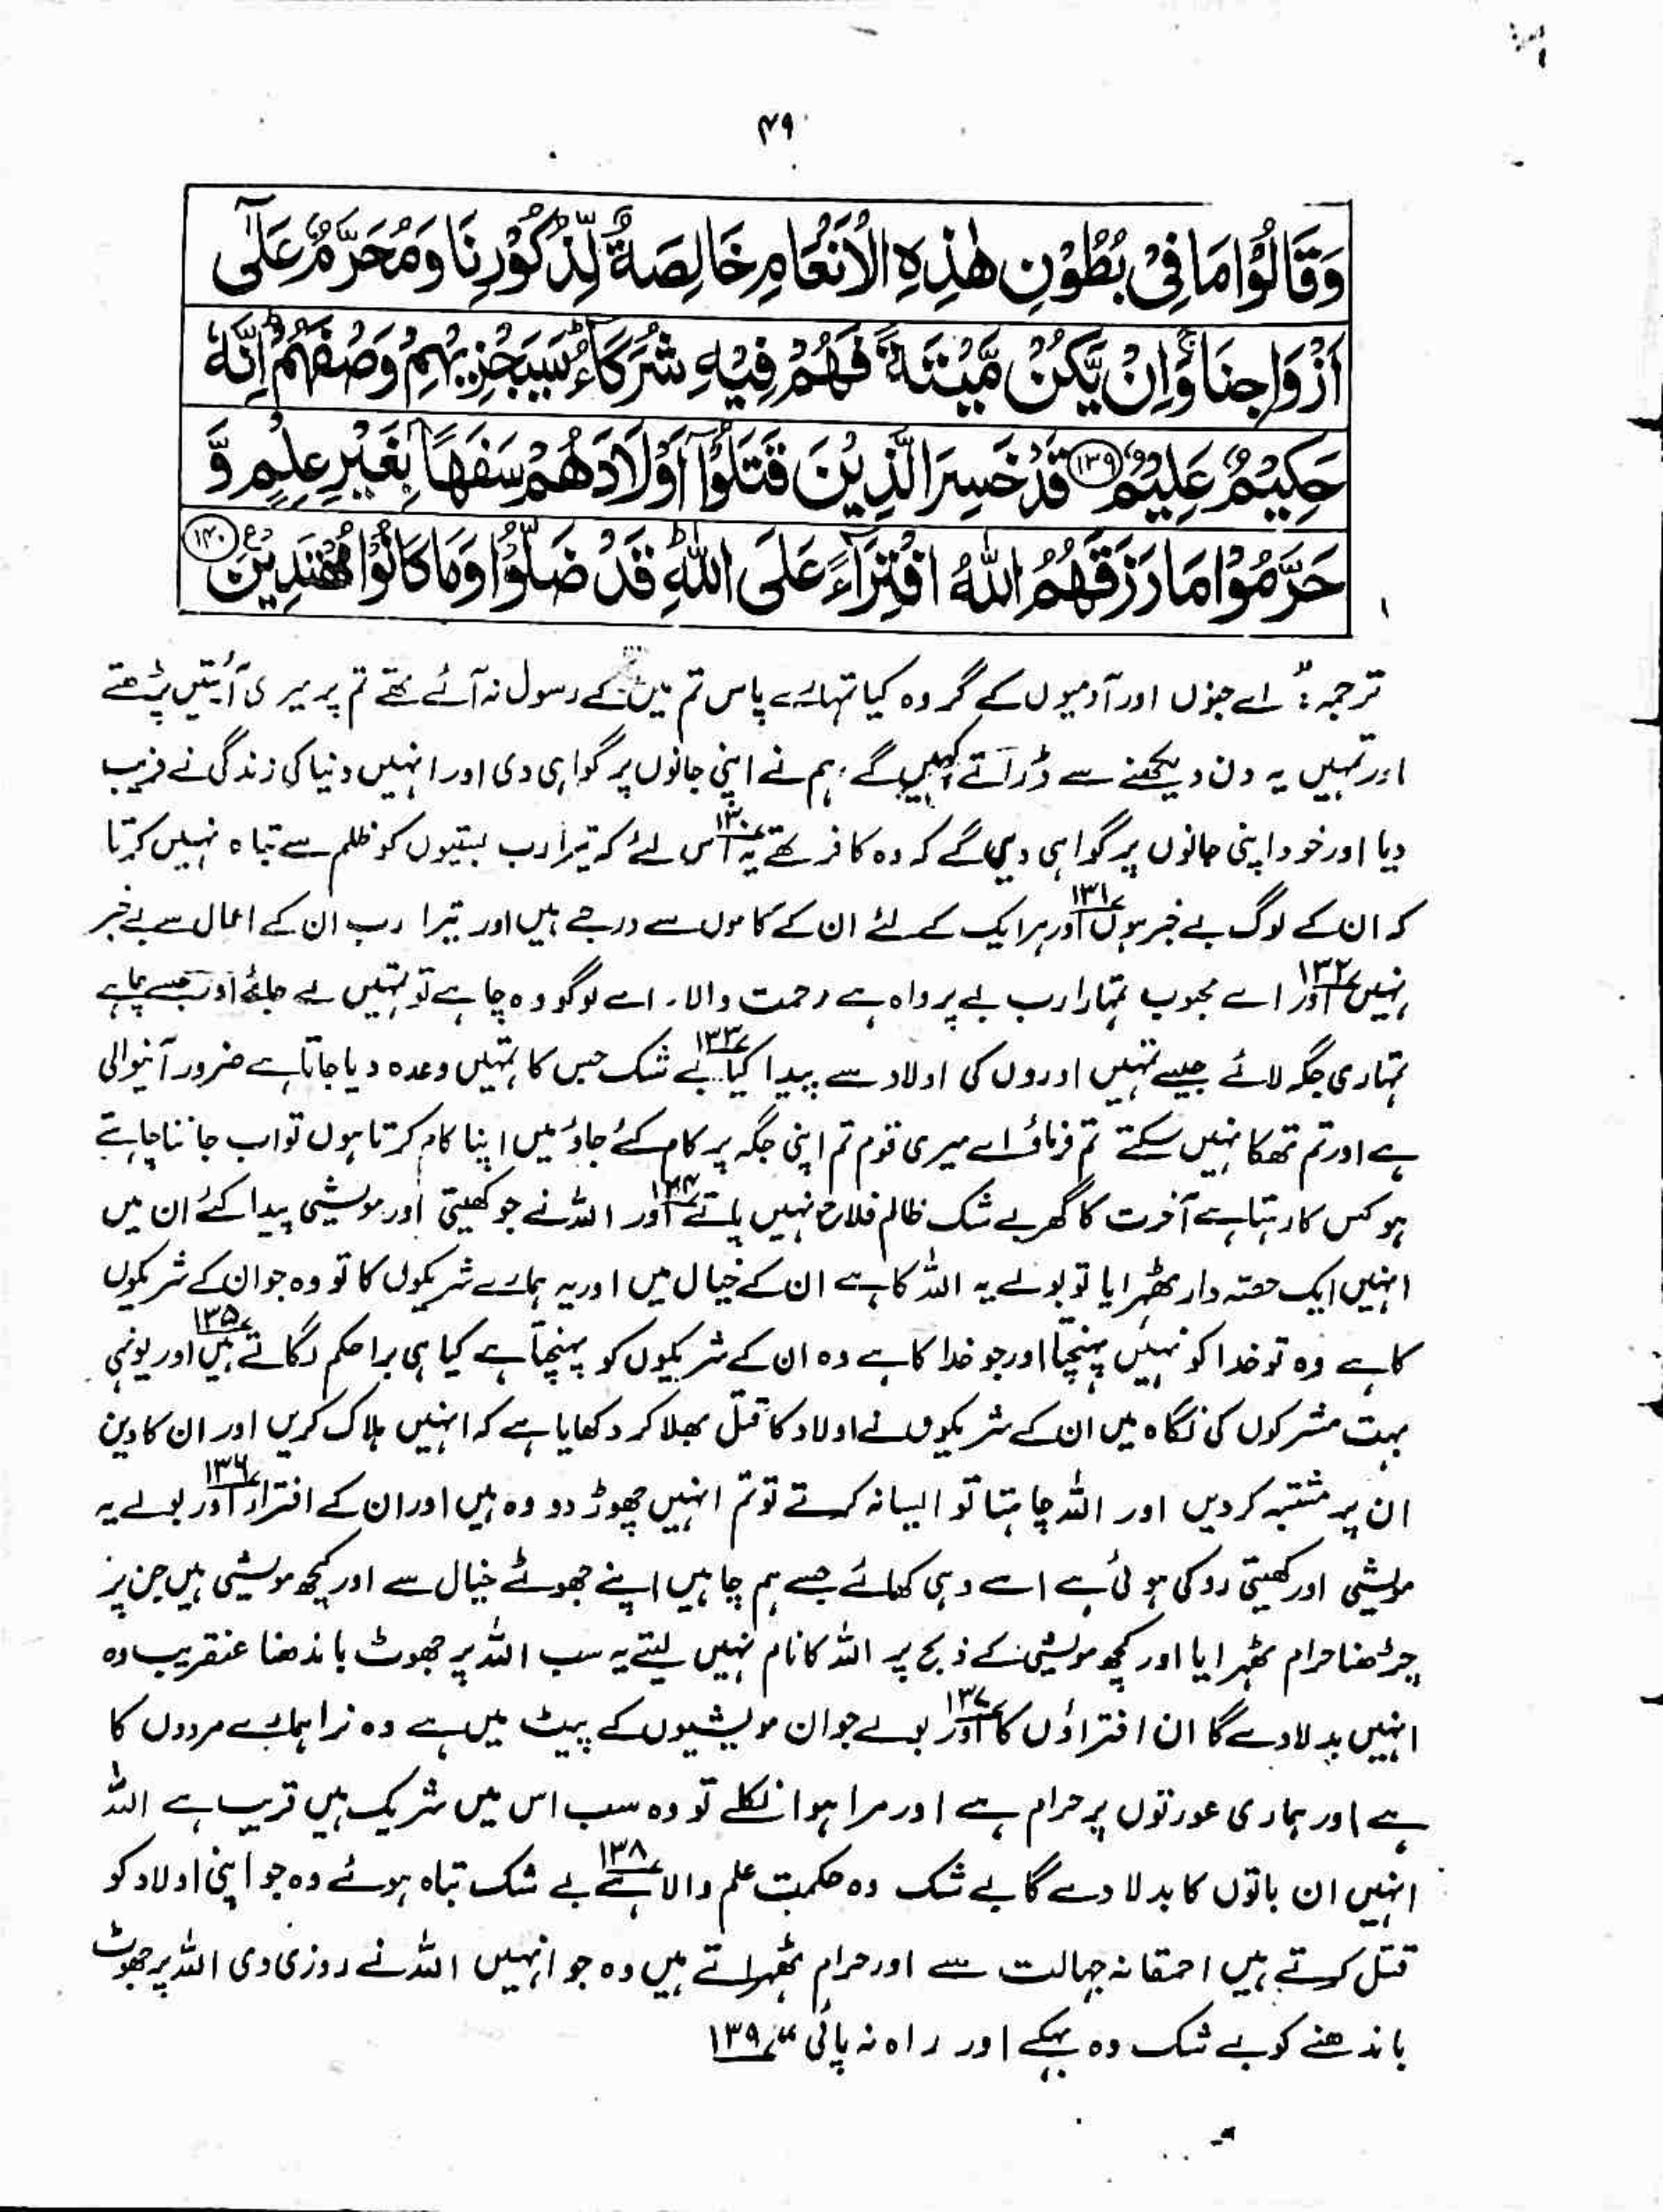 ۴۹
وَقَالُوْا مَا فِیْ بُطُوْنِ هٰذِهِ الْاَنْعَامِ خَالِصَةٌ لِّذُكُوْرِنَا وَمُحَرَّمٌ عَلٰۤی
اَزْوَاجِنَا ۚ وَاِنْ یَّكُنْ مَّیْتَةً فَهُمْ فِیْهِ شُرَكَآءُ ؕ سَیَجْزِیْهِمْ وَصْفَهُمْ ؕ اِنَّهٗ
حَكِیْمٌ عَلِیْمٌ ﴿۱۳۹﴾ قَدْ خَسِرَ الَّذِیْنَ قَتَلُوْۤا اَوْلَادَهُمْ سَفَهًۢا بِغَیْرِ عِلْمٍ وَّ
حَرَّمُوْا مَا رَزَقَهُمُ اللّٰهُ افْتِرَآءً عَلَی اللّٰهِ ؕ قَدْ ضَلُّوْا وَمَا كَانُوْا مُهْتَدِیْنَ ع ﴿۱۴۰﴾
ترجمہ: "اے جنوں اور آدمیوں کے گروہ کیا تمہارے پاس تم میں کے رسول نہ آئے تھے تم پر میری آئتیں پڑھتے
اور تمہیں یہ دن دیکھنے سے ڈراتے کہیں گے، ہم نے اپنی جانوں پر گواہی دی اور انہیں دنیا کی زندگی نے فریب
دیا اور خود اپنی جانوں پر گواہی دیں گے کہ وہ کافر تھے ۱۳۰ یہ اس لئے کہ تیرا رب بستیوں کو ظلم سے تباہ نہیں کرتا
کہ ان کے لوگ بے خبر ہوں ۱۳۱ اور ہر ایک کے لئے ان کے کاموں سے درجے ہیں اور تیرا رب ان کے اعمال سے بے خبر
نہیں ۱۳۲ اور اے محبوب تمہارا رب بے پرواہ ہے رحمت والا۔ اے لوگو وہ چاہے تو تمہیں لے جائے اور جسے چاہے
تمہاری جگہ لائے جیسے تمہیں اوروں کی اولاد سے پیدا کیا ۱۳۳ بے شک جس کا تمہیں وعدہ دیا جاتا ہے ضرور آنیوالی
ہے اور تم تھکا نہیں سکتے تم فرماؤ اے میری قوم تم اپنی جگہ پر کام کئے جاؤ میں اپنا کام کرتا ہوں تو اب جاننا چاہتے
ہو کس کا رہتا ہے آخرت کا گھر بے شک ظالم فلاح نہیں پاتے ۱۳۴ اور اللہ نے جو کھیتی اور مویشی پیدا کئے ان میں
انہیں ایک حصّہ دار ٹھہرایا تو بولے یہ اللہ کا ہے ان کے خیال میں اور یہ ہمارے شریکوں کا تو وہ جو ان کے شریکوں
کا ہے وہ تو خدا کو نہیں پہنچتا اور جو خدا کا ہے وہ ان کے شریکوں کو پہنچتا ہے کیا ہی برا حکم لگاتے ہیں ۱۳۵ اور یونہی
بہت مشرکوں کی نگاہ میں ان کے شریکوں نے اولاد کا قتل بھلا کر دکھایا ہے کہ انہیں ہلاک کریں اور ان کا دین
ان پر مشتبہ کر دیں اور اللہ چاہتا تو ایسا نہ کرتے تو تم انہیں چھوڑ دو وہ ہیں اور ان کے افتراء ۱۳۶ اور بولے یہ
مویشی اور کھیتی روکی ہوئی ہے اسے وہی کھائے جسے ہم چاہیں اپنے جھوٹے خیال سے اور کچھ مویشی ہیں جن پر
چڑھنا حرام ٹھہرایا اور کچھ مویشی کے ذبح پر اللہ کا نام نہیں لیتے یہ سب اللہ پر جھوٹ باندھنا عنقریب وہ
انہیں بدلا دے گا ان افتراؤں کا ۱۳۷ اور بولے جو ان مویشیوں کے پیٹ میں ہے وہ نرا ہمارے مردوں کا
ہے اور ہماری عورتوں پر حرام ہے اور مرا ہوا نکلے تو وہ سب اس میں شریک ہیں قریب ہے اللہ
انہیں ان باتوں کا بدلا دے گا بے شک وہ حکمت علم والا ہے ۱۳۸ بے شک تباہ ہوئے وہ جو اپنی اولاد کو
قتل کرتے ہیں احمقانہ جہالت سے اور حرام ٹھہراتے ہیں وہ جو انہیں اللہ نے روزی دی اللہ پر جھوٹ
باندھنے کو بے شک وہ بہکے اور راہ نہ پائی" ۱۳۹